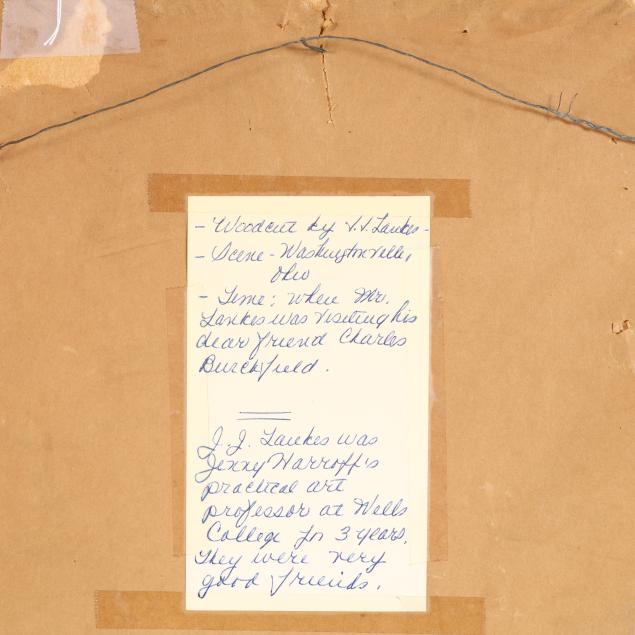 - Woodcut by J.J. Lankes -
- Scene - Washingtonville,
Ohio
- Time: when Mr.
Lankes was visiting his
dear friend Charles
Burchfield.
J.J. Lankes was
Jenny Harroff's
practical art
professor at Wells
College for 3 years.
They were very
good friends.